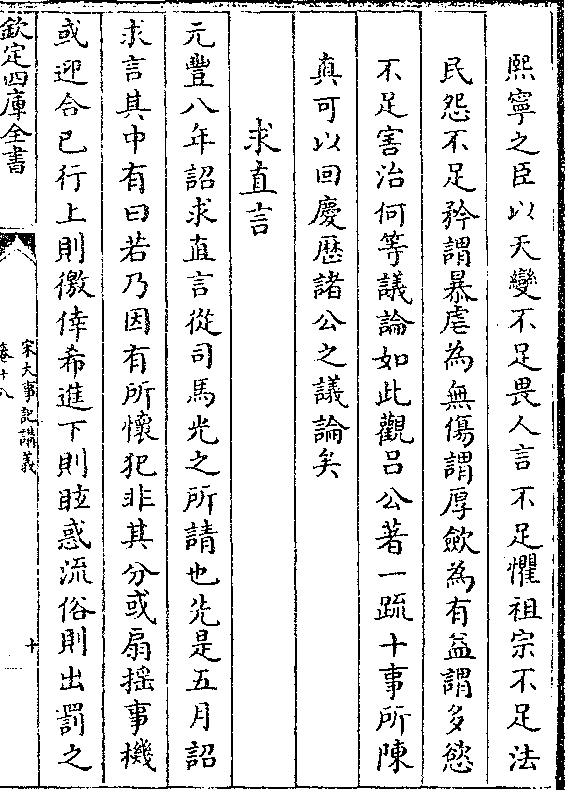 熙寧之臣以天變不足畏人言不足懼祖宗不足法
民怨不足矜謂暴虐為無傷謂厚斂為有益謂多慾
不足害治何等議論如此觀吕公著一疏十事所陳
真可以回慶厯諸公之議論矣
求直言
元豐八年詔求直言從司馬光之所請也先是五月詔
求言其中有曰若乃因有所懷犯非其分或扇揺事機
或迎合已行上則徼倖希進下則眩惑流俗則出罰之
欽定四庫全書
宋大事記講義
卷十八
十